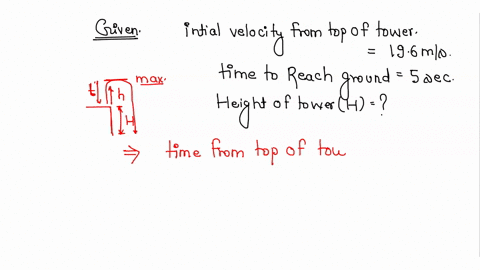 Given. Intial velocity from top of tower.
= 19.6 m/s.
time to Reach ground = 5 sec.
Height of tower (H) = ?
max.
t h
H
⇒ time from top of tou